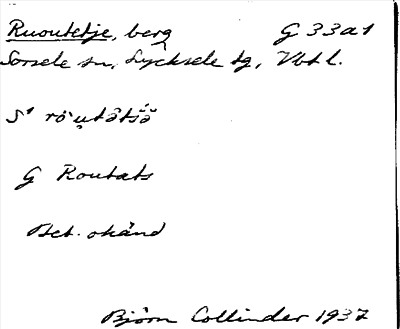 Ruoutetje, berg G 33a1
Sorsele sn, Lycksele tg, Vbtl.
G Routats
Bet. okänd
Björn Collinder 1937